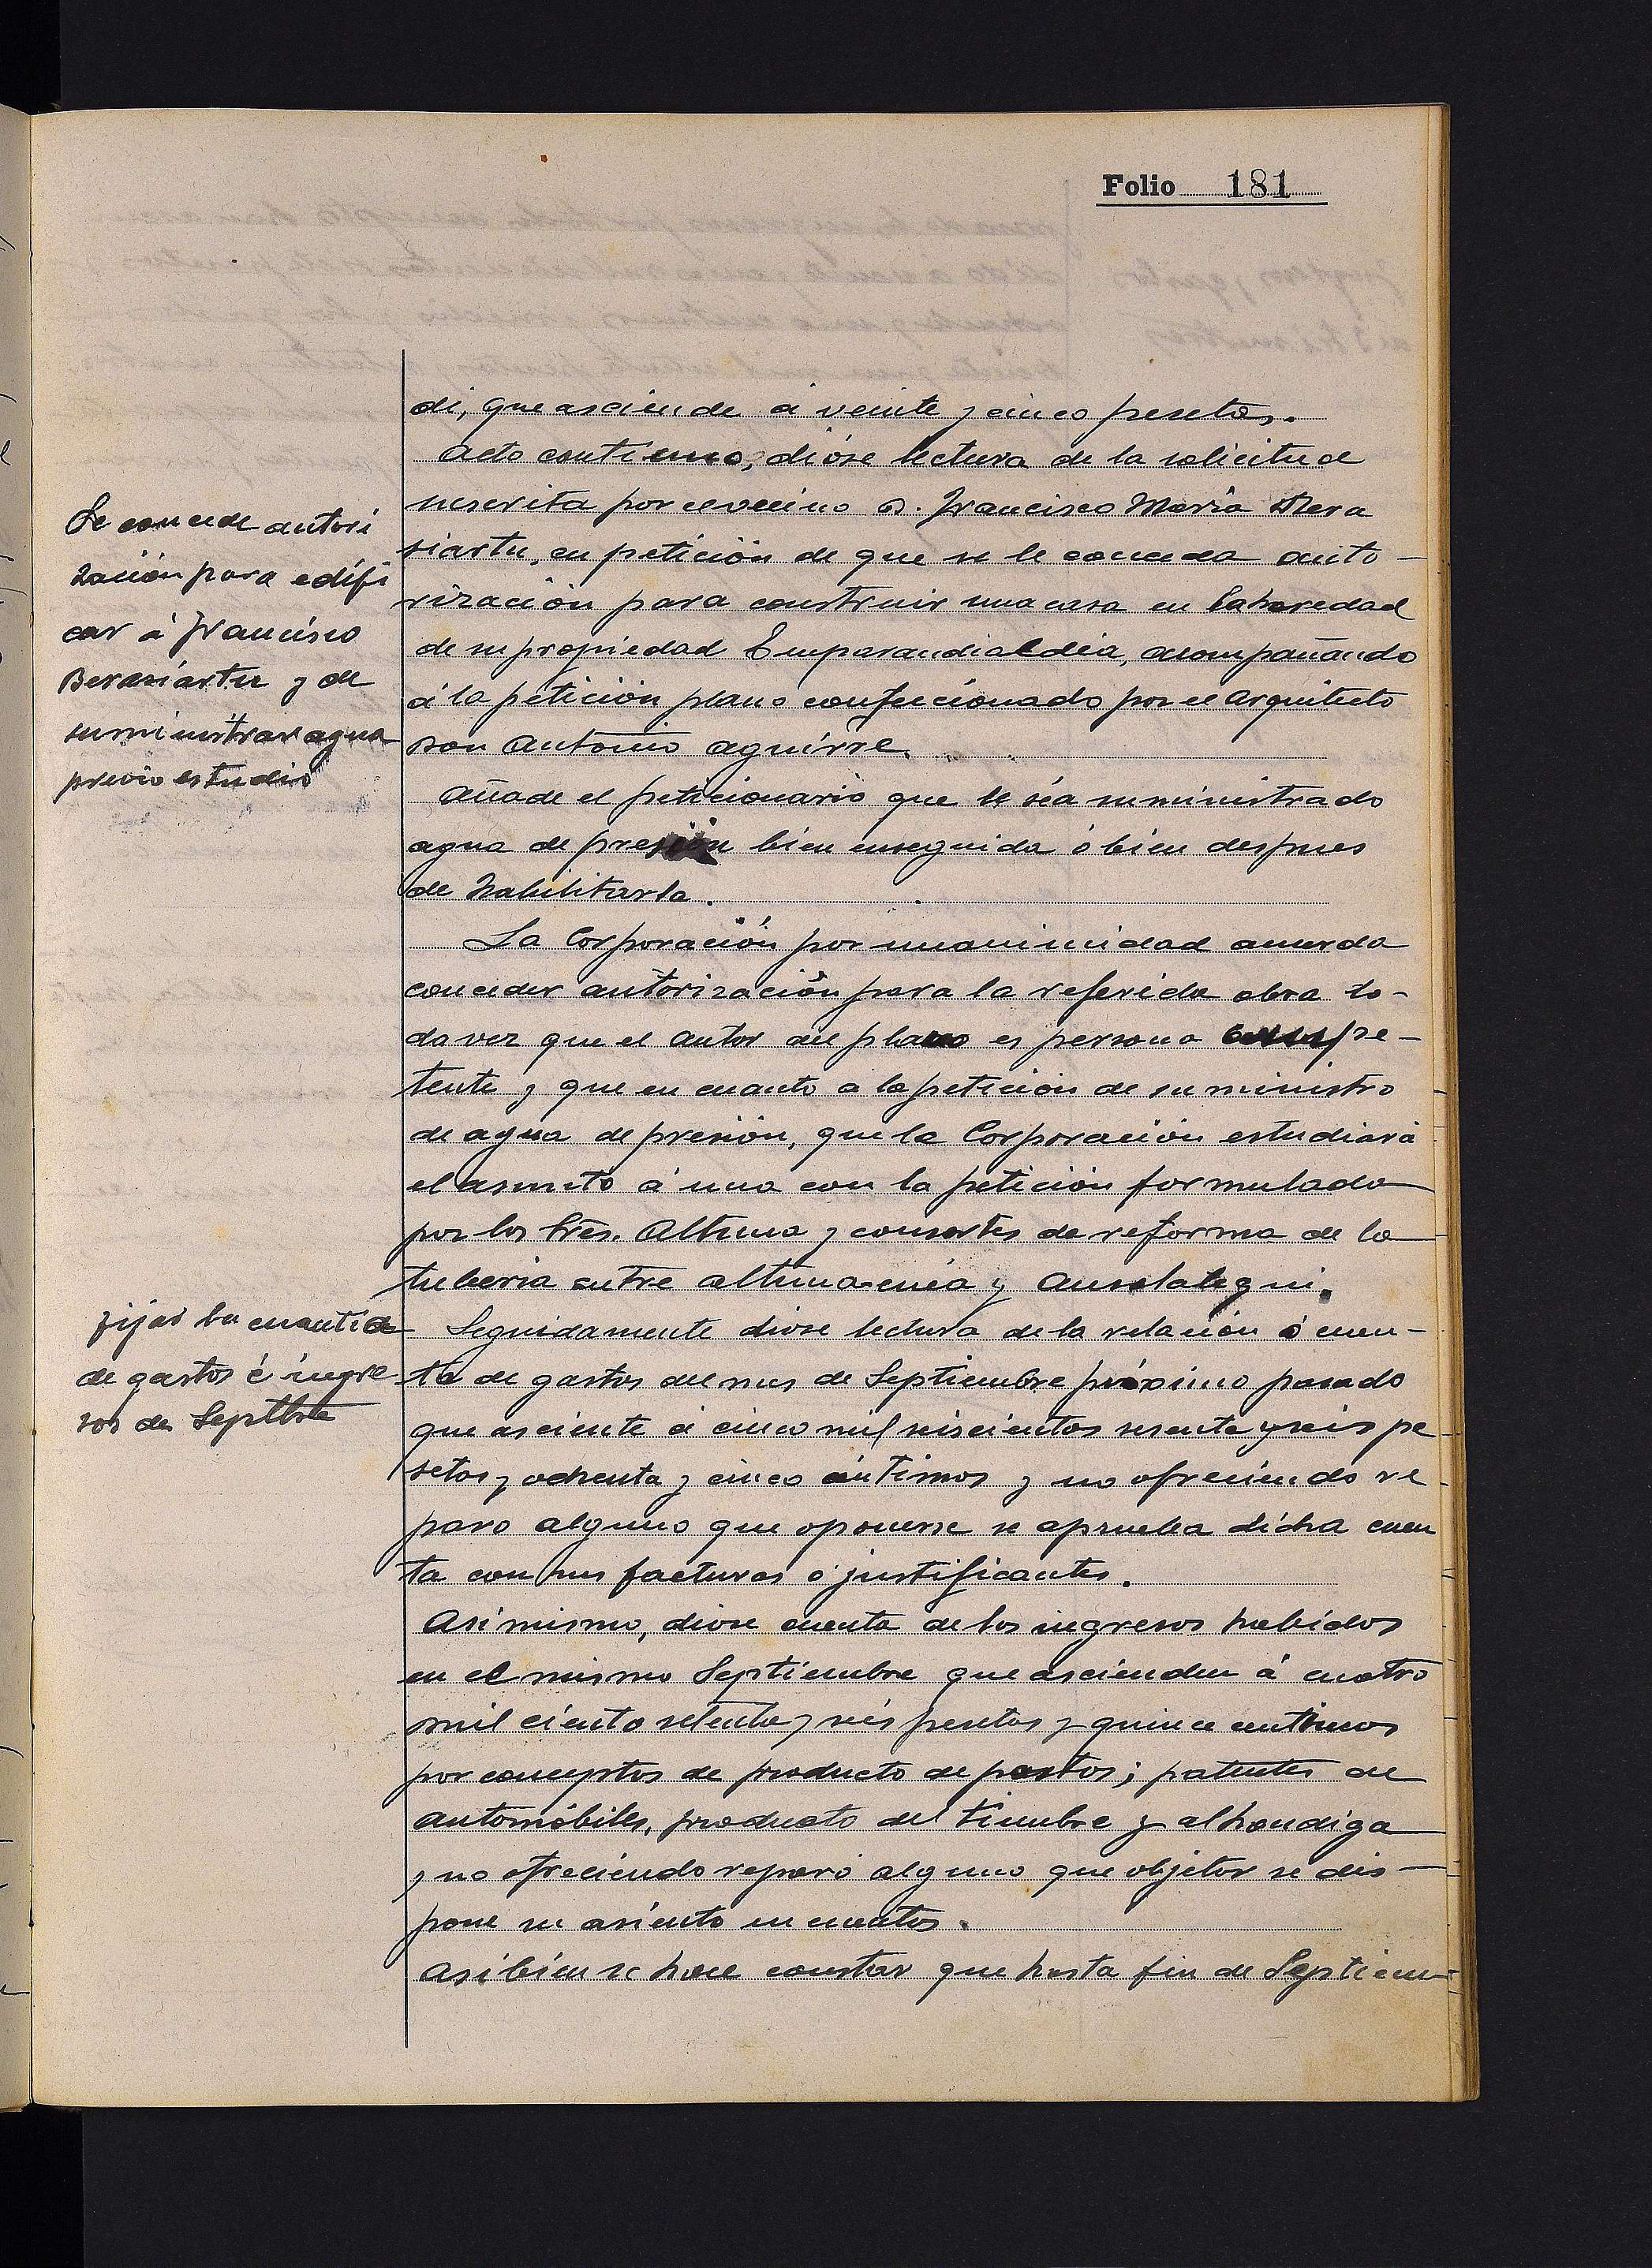 Folio 181
di, que asciende á veinte y cinco pesetas.
Acto continuo, dióse lectura de la solicitud
suscrita por el vecino D. Francisco María Bera
siartu, en petición de que se le conceda auto-
rización para construir una casa en la heredad
de su propiedad Emparandialdea, acompañando
á la petición plano confeccionado por el arquitecto
Don Antonio Aguirre.
Añade el peticionario que le séa suministrado
agua de presión bien enseguida ó bien despues
de habilitarla.
La Corporación por unanimidad acuerda
conceder autorización para la referida obra to-
da vez que el autor del plano es persona compe-
tente y que en cuanto a la petición de suministro
de agua de presión, que la Corporación estudiará
el asunto á una con la petición formulada
por los Sres. Altuna y consortes de reforma de la
tuberia entre altuna-enea y
Seguidamente dióse lectura de la relación ó cuen-
ta de gastos del mes de Septiembre próximo pasado
que asciente á cinco mil seiscientos sesenta y seis pe
setas y ochenta y cinco céntimos y no ofreciendo re
paro alguno que oponerse se aprueba dicha cuen
ta con sus facturas ó justificantes.
Asimismo, dióse cuenta de los ingresos habidos
en el mismo Septiembre que ascienden á cuatro
mil ciento setenta y séis pesetas y quince centimos
por conceptos de producto de pastos; patentes de
automóbiles, producto del timbre y alhondiga
y no ofreciendo reparo alguno que objetar se dis-
pone su asiento en cuentas.
Asi bien se hace constar que hasta fin de Septiem-
Se concede autori
zación para edifi
car á Francisco
Berasiartu y de
suministrar agua
previo estudio
fijar la cuantia
de gastos é ingre
sos de Septbre